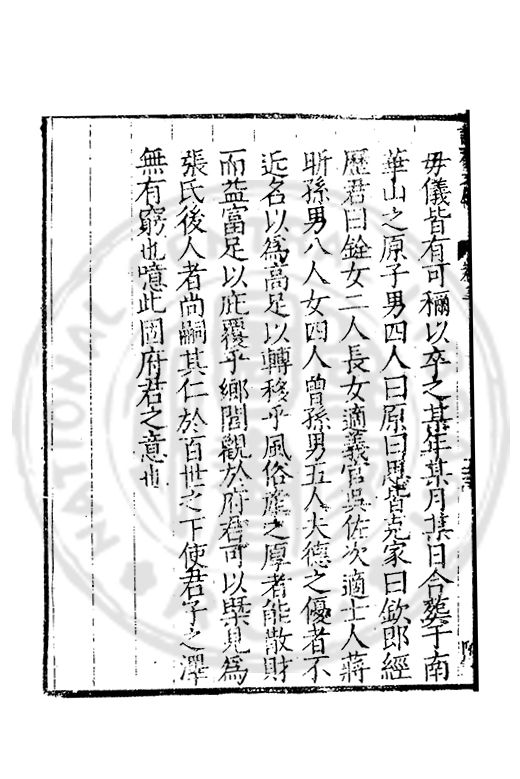 毋儀皆有可稱以卒之某年某月某日合塟于南
華山之原子男四人曰原曰思皆克家曰欽郎經
歷君曰銓女二人長女適義官吳佐次適士人蔣
昕孫男八人女四人曾孫男五人夫德之優者不
近名以爲高足以轉移乎風俗產之厚者能散財
而益富足以庇覆乎鄉閭觀於府君可以槩見爲
張氏後人者尚嗣其仁於百世之下使君子之澤
無有窮也噫此固府君之意也
NATIONAL